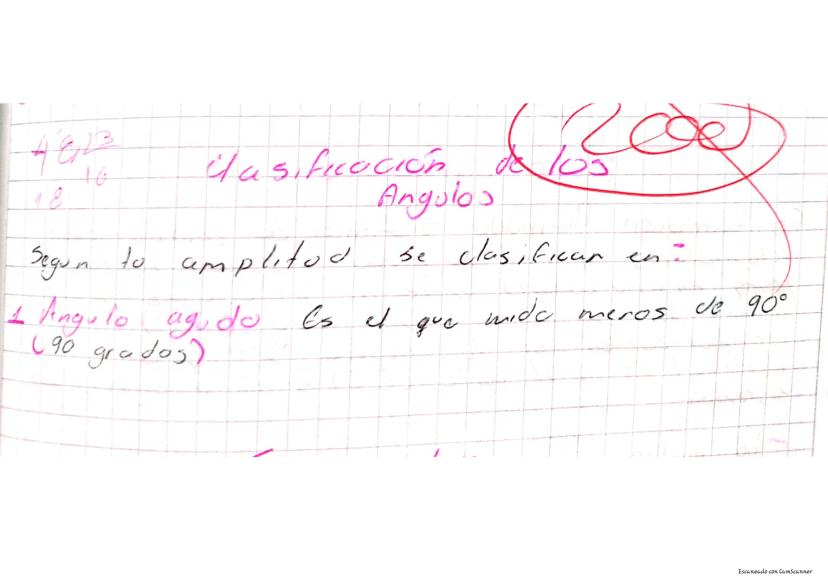 Clasificación de los
Angulos
Segun la amplitud se clasifican en:
1 Angulo agudo Es el que mide menos de 90°
(90 grados)
Escaneado con CamScanner